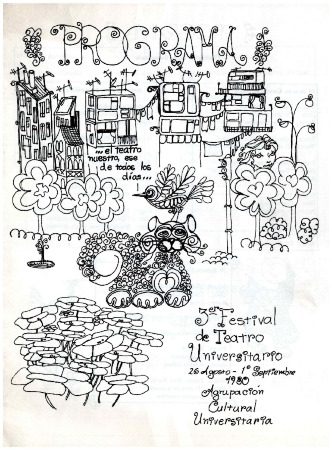 PROGRAMA
... el teatro
nuestro, ese
de todos los
días ...
!
3er Festival
de Teatro
Universitario
26 Agosto - 1º Septiembre
1980
Agrupación
Cultural
Universitaria